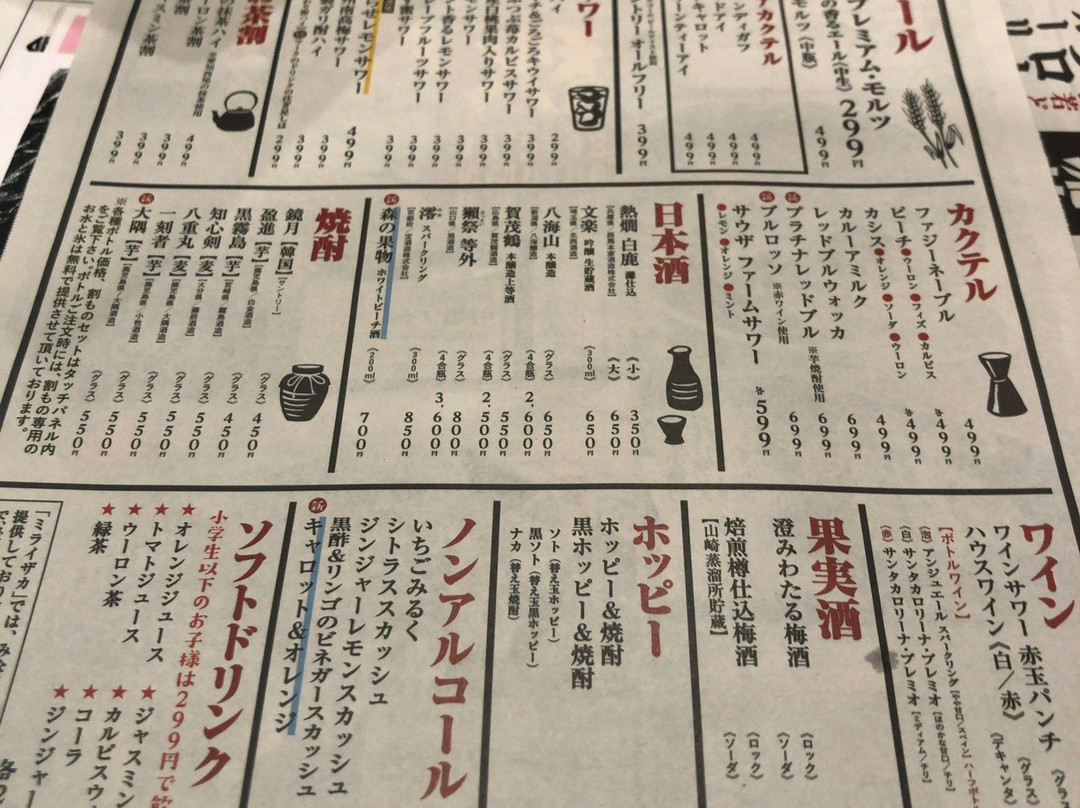 ール
プレミアム・モルツ
の香るエール《中生》 299円
モルツ《中瓶》 499円
カクテル
ンディガフ 499円
ドアイ 499円
キャロット 499円
ーンティーアイ 499円
オールフリー 399円
ワー
ごろごろキウイサワー 299円
カルピスサワー 399円
桃果肉入りサワー 399円
モンサワー 399円
香るレモンサワー 399円
ープフルーツサワー 399円
蜜サワー 399円
レモンサワー 499円
南高梅サワー 399円
399円
299円
お茶割
抹茶ハイ 499円
ーロン茶割 399円
スミン茶割 399円
399円
カクテル
ファジーネーブル 499円
ピーチ●ウーロン●フィズ●カルピス 各499円
カシス●オレンジ●ソーダ●ウーロン 各499円
カルーアミルク 499円
レッドブルウォッカ 699円
プラチナレッドブル ※芋焼酎使用 699円
ブルロッソ ※赤ワイン使用 699円
サウザ ファームサワー 各599円
●レモン●オレンジ●ミント
日本酒
熱燗 白鹿 灘仕込 《小》 350円
《大》 650円
文楽 吟醸 生貯蔵酒 《300ml》 650円
八海山 本醸造 《グラス》 650円
《4合瓶》 2,600円
賀茂鶴 本醸造上等酒 《グラス》 550円
《4合瓶》 2,500円
獺祭 等外 《グラス》 800円
《4合瓶》 3,600円
澪 スパークリング 《300ml》 850円
森の果物 ホワイトピーチ酒 《200ml》 700円
焼酎
鏡月【韓国】[サントリー] 《グラス》 450円
盈進【芋】 《グラス》 450円
黒霧島【芋】 《グラス》 450円
知心剣【麦】 《グラス》 550円
八重丸【麦】 《グラス》 550円
一刻者【芋】 《グラス》 550円
大隅【芋】 《グラス》 550円
※各種ボトル価格、割ものセットはタッチパネル内
をご覧下さい。ボトルご注文時には、割もの専用の
お水と氷は無料で提供させて頂いております。
ワイン
ワインサワー 赤玉パンチ
ハウスワイン《白／赤》 《グラス》
《デキャンタ》
【ボトルワイン】
《泡》アンジュエール スパークリング [やや甘口／スペイン]
《白》サンタカロリーナ・プレミオ [ほのかな甘口／チリ]
《赤》サンタカロリーナ・プレミオ [ミディアム／チリ]
果実酒
澄みわたる梅酒 《ロック》
《ソーダ》
焙煎樽仕込梅酒 《ロック》
[山崎蒸溜所貯蔵] 《ソーダ》
ホッピー
ホッピー＆焼酎
黒ホッピー＆焼酎
ソト《替え玉ホッピー》
黒ソト《替え玉黒ホッピー》
ナカ《替え玉焼酎》
ノンアルコール
いちごみるく
シトラススカッシュ
ジンジャーレモンスカッシュ
黒酢＆リンゴのビネガースカッシュ
キャロット＆オレンジ
ソフトドリンク
小学生以下のお子様は299円で
★オレンジジュース
★トマトジュース
★ウーロン茶
★緑茶
★ジャスミン
★カルピスウ
★コーラ
★ジンジャー
「ミライザカ」では、
提供しており